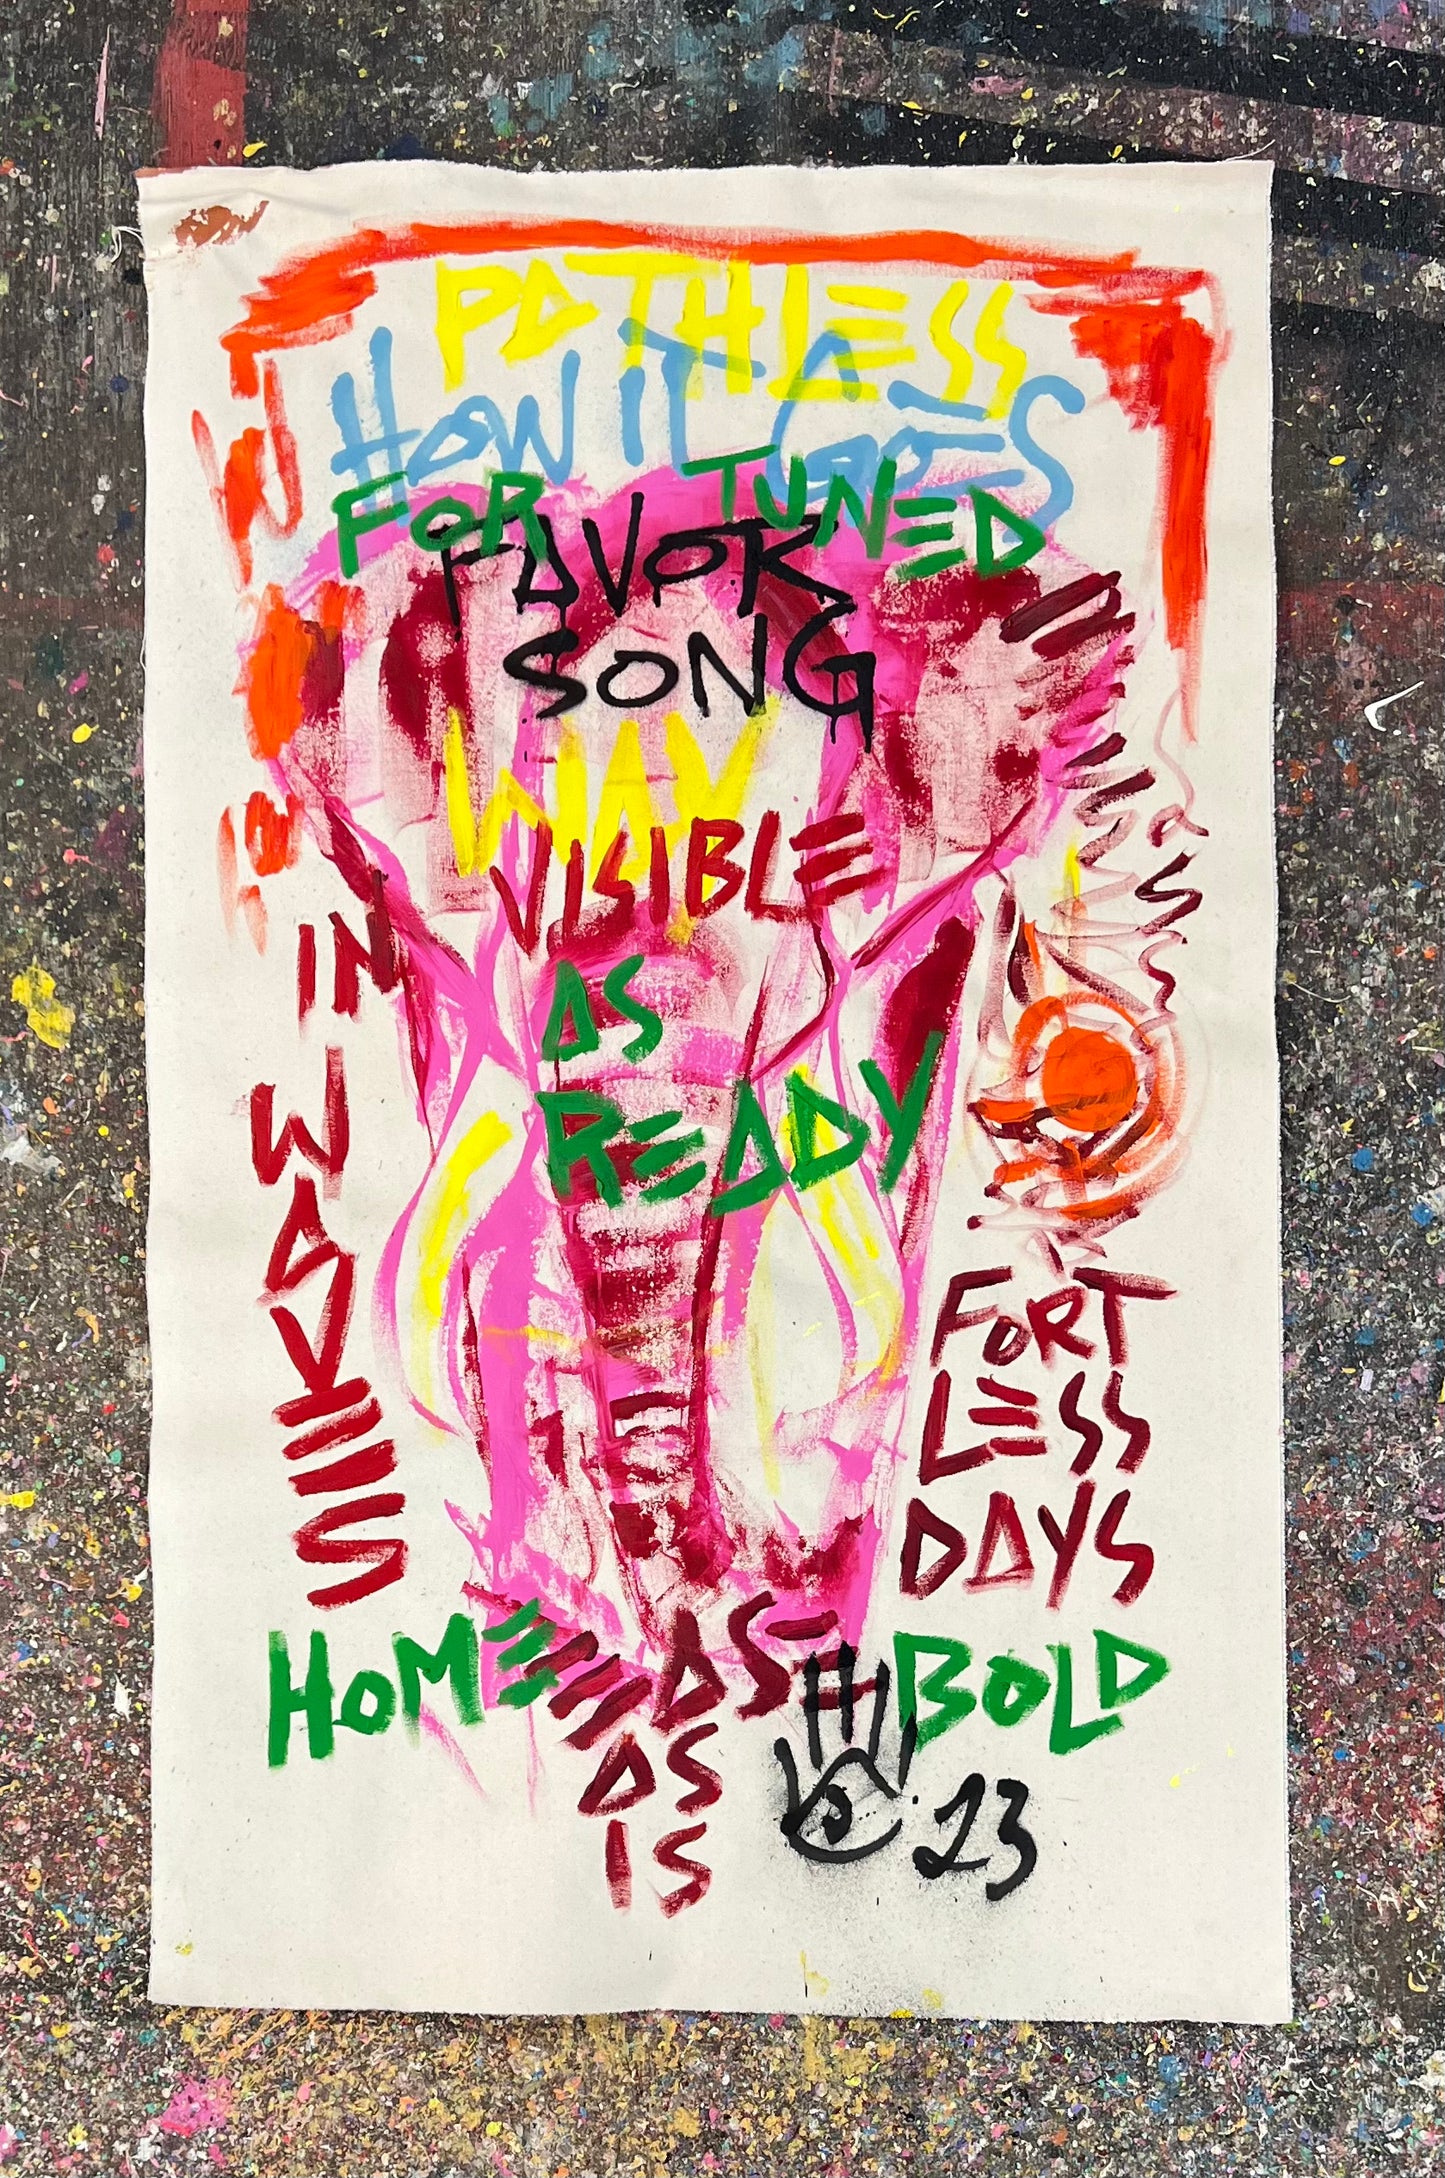 PATHLESS
HOW IT GOES
FOR TUNED
FAVOR
SONG
WAY
VISIBLE
IN
WAVES
AS
READY
FORT
LESS
DAYS
HOME AS BOLD
AS
IS
23